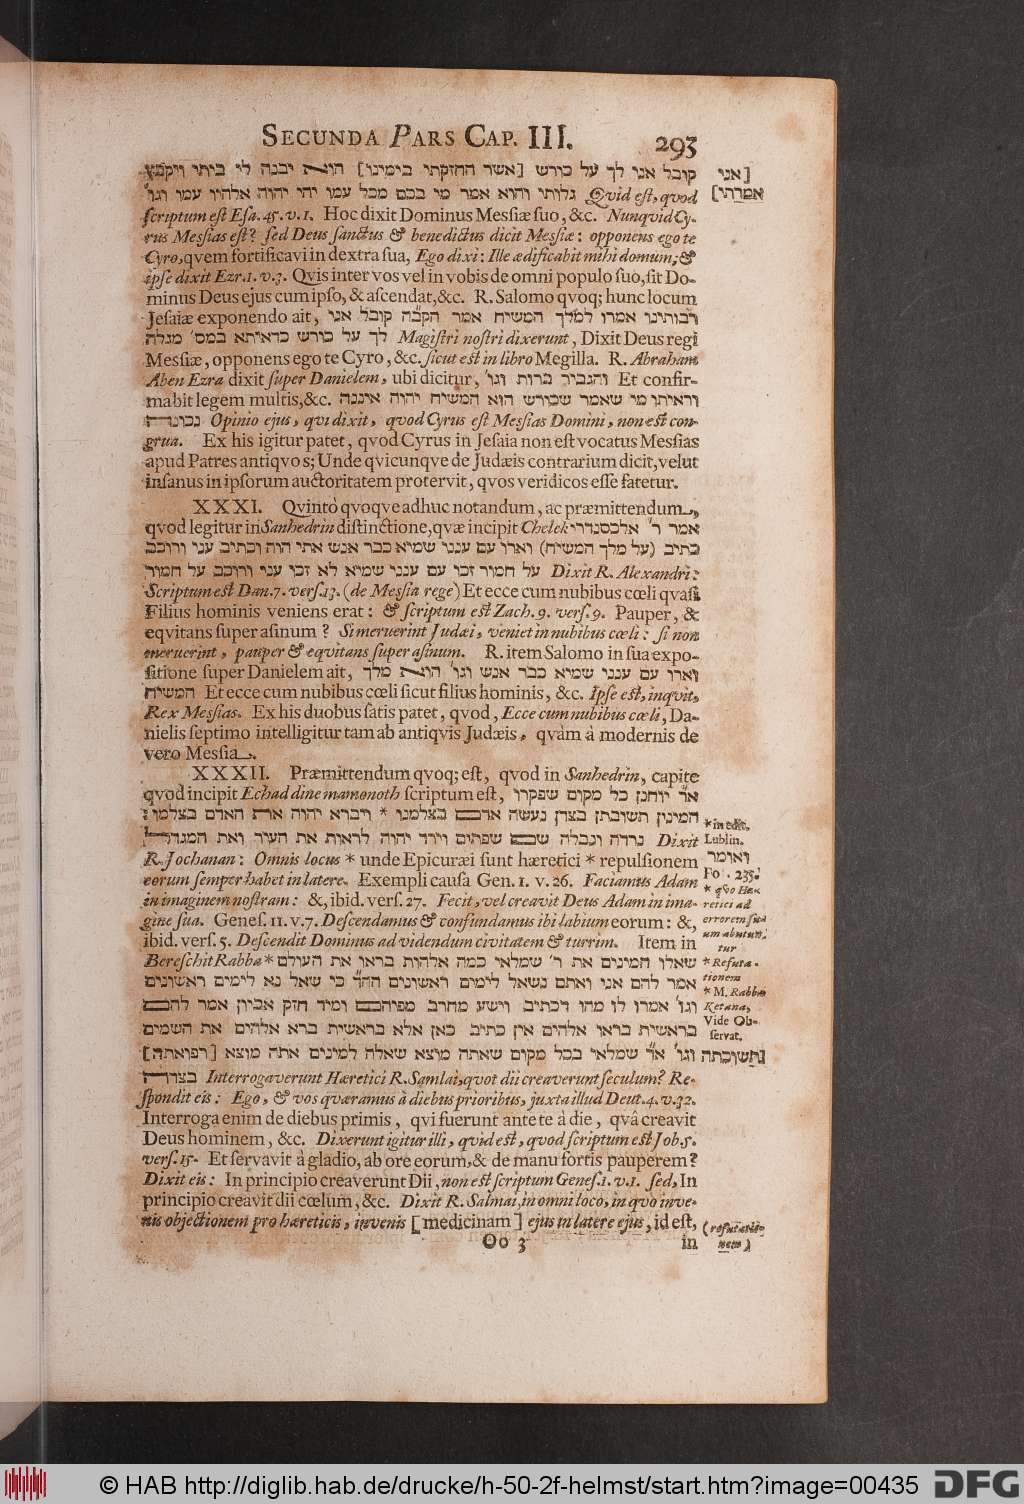 SECUNDA PARS CAP. III. 293
קובל אני לך על כורש [אשר החזקתי בימינו] הוא יבנה לי ביתי ויקבץ
[אני
אמרתי]
גלותי והוא אמר מי בכם מכל עמו יהי יהוה אלהיו עמו וגו׳ Qvid est, qvod
scriptum est Esa. 45. v. 1. Hoc dixit Dominus Messiæ suo, &c. Nunqvid Cy-
rus Messias est? sed Deus sanctus & benedictus dicit Messiæ: opponens ego te
Cyro, qvem fortificavi in dextra sua, Ego dixi: Ille ædificabit mihi domum; &
ipse dixit Ezr. 1. v. 3. Qvis inter vos vel in vobis de omni populo suo, sit Do-
minus Deus ejus cum ipso, & ascendat, &c. R. Salomo qvoq; hunc locum
Jesaiæ exponendo ait, רבותינו אמרו למלך המשיח אמר הקב״ה קובל אני
לך על כורש כדאיתא במס׳ מגלה Magistri nostri dixerunt, Dixit Deus regi
Messiæ, opponens ego te Cyro, &c. sicut est in libro Megilla. R. Abraham
Aben Ezra dixit super Danielem, ubi dicitur, והגביר ברות וגו׳ Et confir-
mabit legem multis, &c. וראיתי מי שאמר שכורש הוא המשיח יהוה איננה
נכונה Opinio ejus, qvi dixit, qvod Cyrus est Messias Domini, non est con-
grua. Ex his igitur patet, qvod Cyrus in Jesaia non est vocatus Messias
apud Patres antiqvos; Unde qvicunqve de Judæis contrarium dicit, velut
insanus in ipsorum auctoritatem protervit, qvos veridicos esse fatetur.
XXXI. Qvintò qvoqve adhuc notandum, ac præmittendum,
qvod legitur in Sanhedrin distinctione, qvæ incipit Chelek אמר ר׳ אלכסנדרי
כתיב (על מלך המשיח) וארו עם ענני שמיא כבר אנש אתי הוה וכתיב עני ורוכב
על חמור זכו עם ענני שמיא לא זכו עני ורוכב על חמור Dixit R. Alexandri:
Scriptum est Dan. 7. vers. 13. (de Messia rege) Et ecce cum nubibus cœli qvasi
Filius hominis veniens erat: & scriptum est Zach. 9. vers. 9. Pauper, &
eqvitans super asinum? Si meruerint Judæi, veniet in nubibus cœli: si non
meruerint, pauper & eqvitans super asinum. R. item Salomo in sua expo-
sitione super Danielem ait, וארו עם ענני שמיא כבר אנש וגו׳ הוא מלך
המשיח Et ecce cum nubibus cœli sicut filius hominis, &c. Ipse est, inqvit,
Rex Messias. Ex his duobus satis patet, qvod, Ecce cum nubibus cœli, Da-
nielis septimo intelligitur tam ab antiqvis Judæis, qvàm à modernis de
vero Messia.
XXXII. Præmittendum qvoq; est, qvod in Sanhedrin, capite
qvod incipit Echad dine mamonoth scriptum est, א״ר יוחנן כל מקום שפקרו
המינין תשובתן בצדן נעשה אדם בצלמנו * ויברא יהוה את האדם בצלמו:
נרדה ונבלה שם שפתום וירד יהוה לראות את העיר ואת המגדל Dixit
R. Jochanan: Omnis locus * unde Epicuræi sunt hæretici * repulsionem
eorum semper habet in latere. Exempli causa Gen. 1. v. 26. Faciamus Adam
in imaginem nostram: &, ibid. vers. 27. Fecit, vel creavit Deus Adam in ima-
gine sua. Genes. 11. v. 7. Descendamus & confundamus ibi labium eorum: &,
ibid. vers. 5. Descendit Dominus ad videndum civitatem & turrim. Item in
Bereschit Rabba * שאלו המינים את ר׳ שמלאי כמה אלהות בראו את העולם
אמר להם אני ואתם נשאל לימים ראשונים הה״ד כי שאל נא לימים ראשונים
וגו׳ אמרו לו מהו דכתיב וישע מחרב מפיהם ומיד חזק אביון אמר להם
בראשית בראו אלהים אין כתיב כאן אלא בראשית ברא אלהים את השמים
וגו׳ א״ר שמלאי בכל מקום שאתה מוצא שאלה למינים אתה מוצא [רפואתה]
בצדה Interrogaverunt Hæretici R. Samlai, qvot dii creaverunt seculum? Re-
spondit eis: Ego, & vos qværamus à diebus prioribus, juxta illud Deut. 4. v. 32.
Interroga enim de diebus primis, qvi fuerunt ante te à die, qvâ creavit
Deus hominem, &c. Dixerunt igitur illi, qvid est, qvod scriptum est Job. 5.
vers. 15. Et servavit à gladio, ab ore eorum, & de manu fortis pauperem?
Dixit eis: In principio creaverunt Dii, non est scriptum Genes. 1. v. 1. sed, In
principio creavit dii cœlum, &c. Dixit R. Salmai, in omni loco, in qvo inve-
nis objectionem pro hæreticis, invenis [medicinam] ejus in latere ejus, id est,
Oo 3 in
* in edit.
Lublin.
ואומר
Fo. 235.
* qvo Hæ-
retici ad
errorem suũ
um abutun-
tur
* Refuta-
tionem
* M. Rabba
Ketana,
Vide Ob-
servat.
[תשובתה
(refutatio-
nem)
© HAB http://diglib.hab.de/drucke/h-50-2f-helmst/start.htm?image=00435 DFG